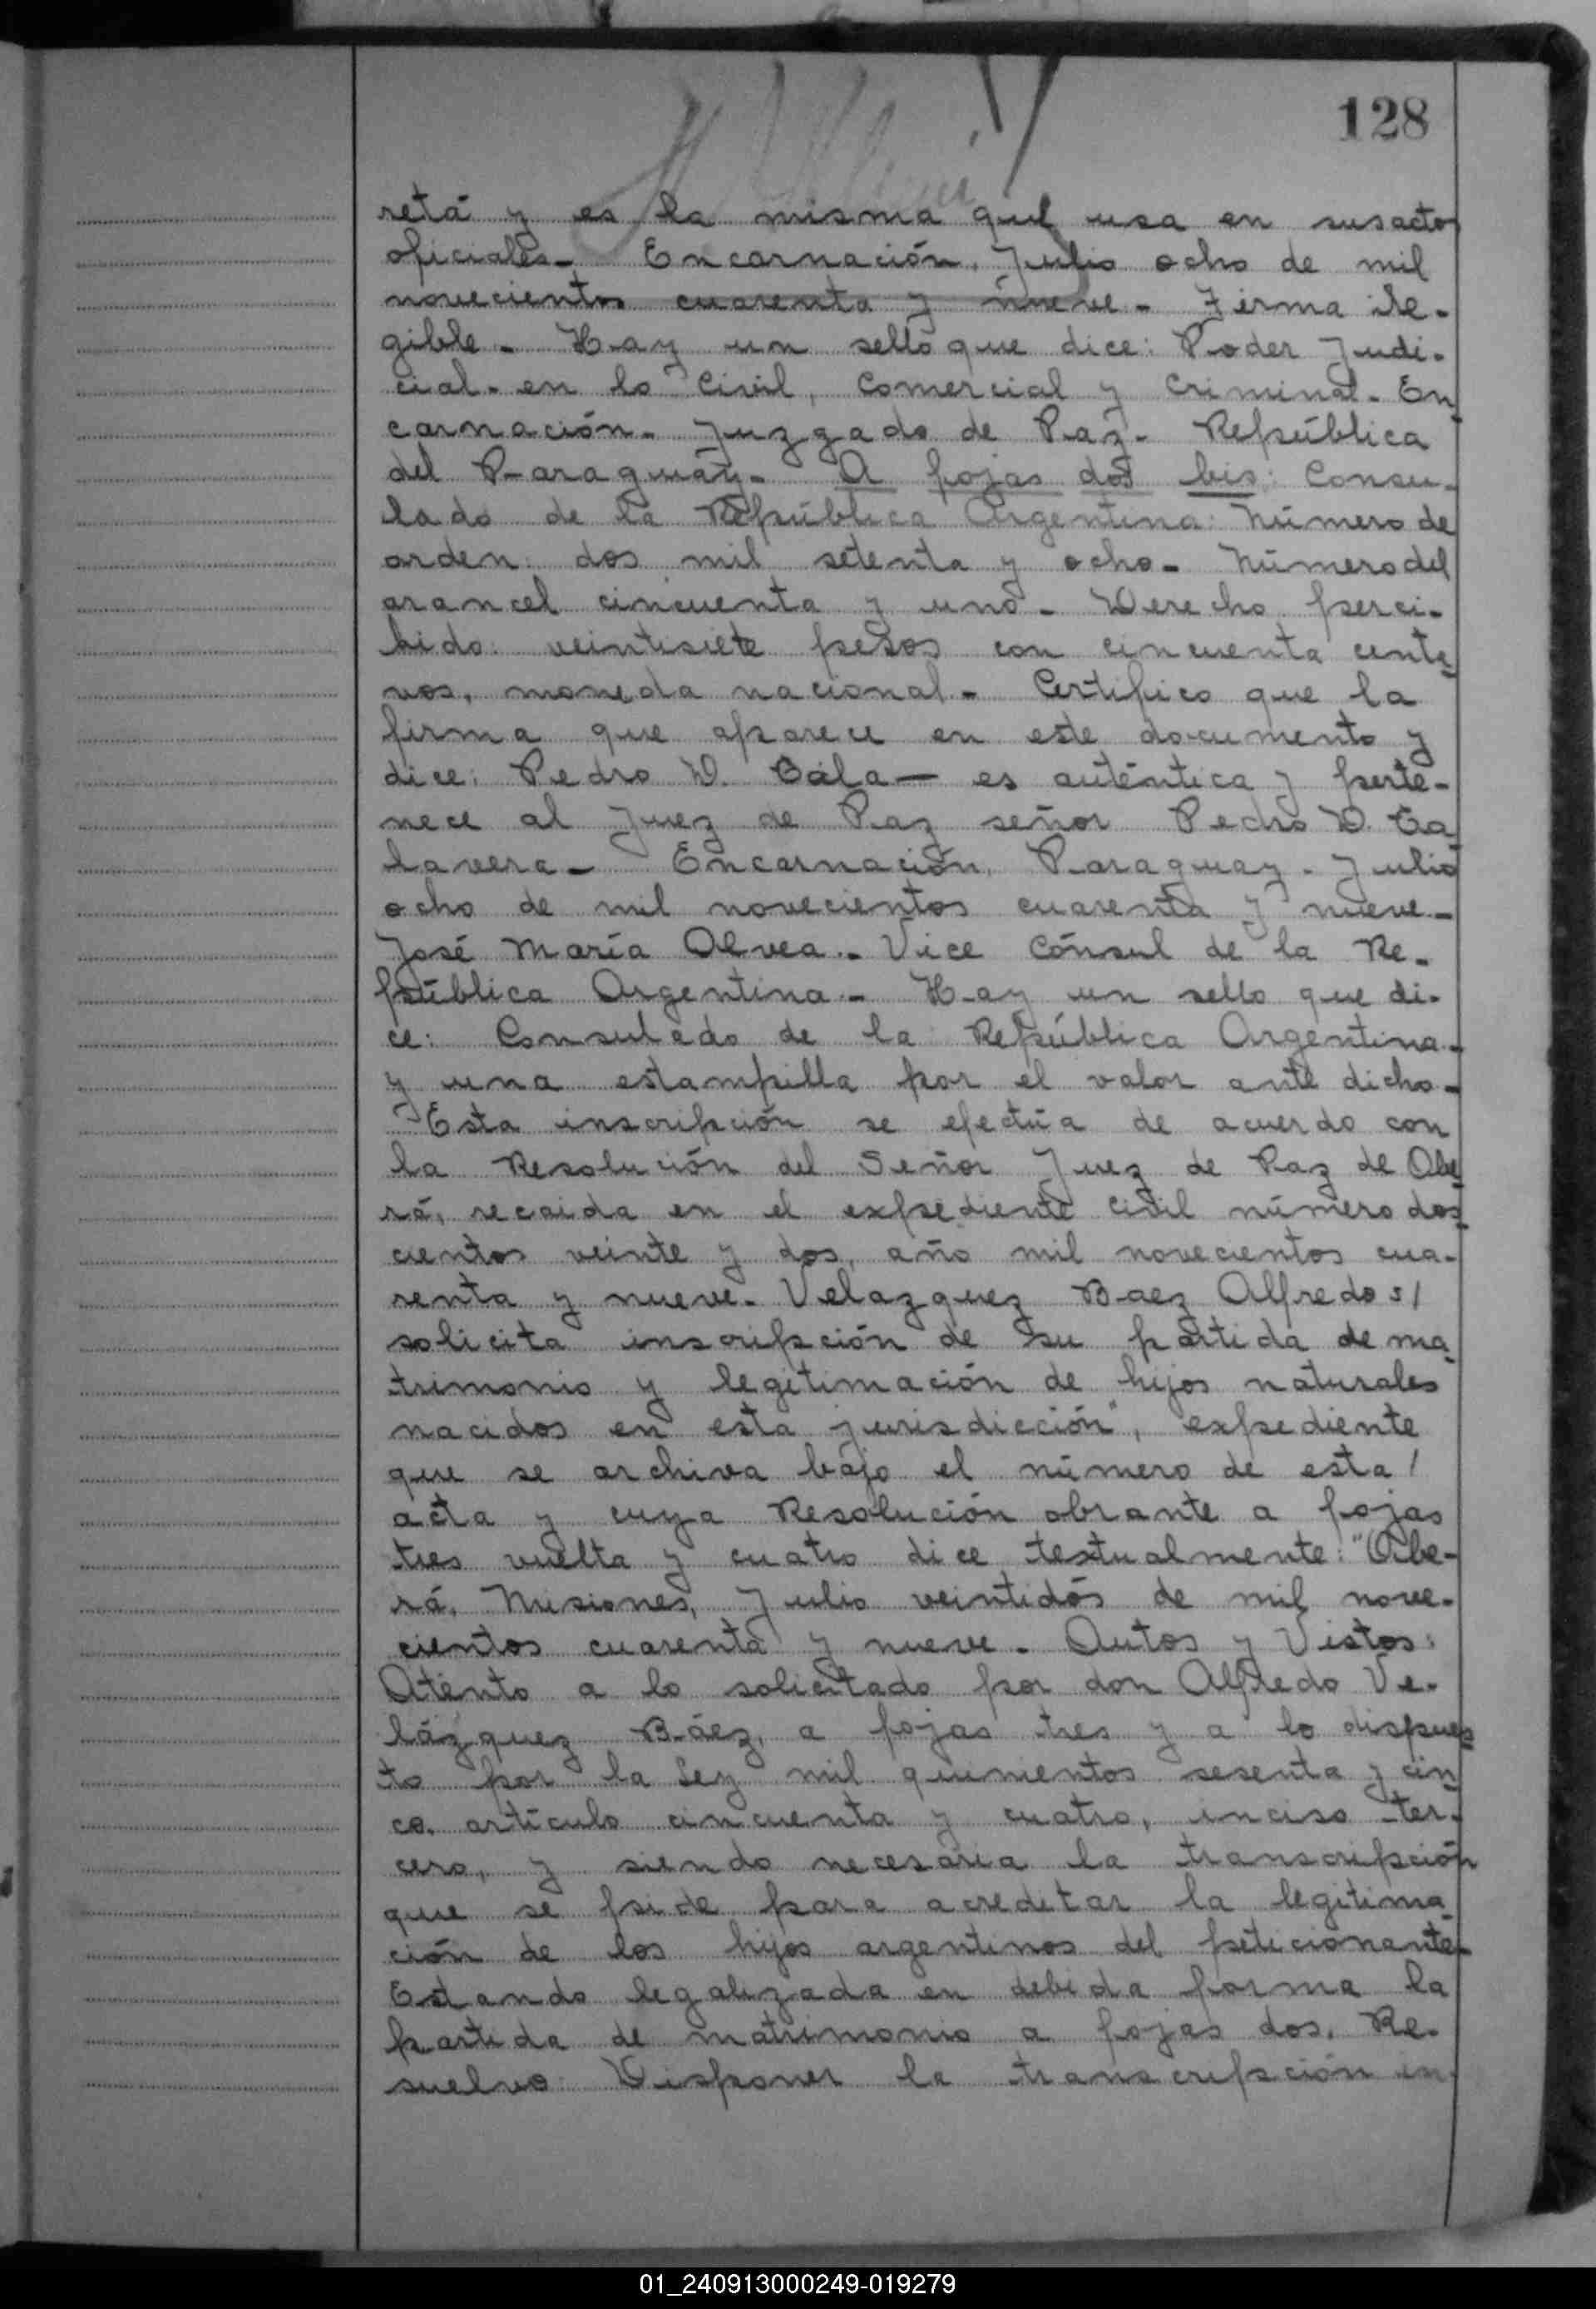 128
retá y es la misma que usa en sus actos
oficiales- Encarnación, Julio ocho de mil
novecientos cuarenta y nueve- Firma ile-
gible- Hay un sello que dice: Poder Judi-
cial- en lo Civil, Comercial y Criminal- En
carnación- Juzgado de Paz- República
del Paraguay- A fojas dos bis: Consu-
lado de la República Argentina: Número de
orden: dos mil setenta y ocho- Número del
arancel cincuenta y uno- Derecho perci-
bido: veintisiete pesos con cincuenta centa
vos, moneda nacional- Certifico que la
firma que aparece en este documento y
dice: Pedro D. Tala— es auténtica y perte-
nece al Juez de Paz señor Pedro D. Ta
lavera- Encarnación, Paraguay- Julio
ocho de mil novecientos cuarenta y nueve-
José María Olvea- Vice Cónsul de la Re-
pública Argentina- Hay un sello que di-
ce: Consulado de la República Argentina-
y una estampilla por el valor ante dicho-
Esta inscripción se efectúa de acuerdo con
la Resolución del Señor Juez de Paz de Obe
rá, recaida en el expediente civil número dos
cientos veinte y dos, año mil novecientos cua-
renta y nueve- Velazquez Baez Alfredo s/
solicita inscripción de su partida de ma
trimonio y legitimación de hijos naturales
nacidos en esta jurisdicción", expediente
que se archiva bajo el número de esta /
acta y cuya Resolución obrante a fojas
tres vuelta y cuatro dice textualmente: "Obe-
rá, Misiones, Julio veintidós de mil nove-
cientos cuarenta y nueve- Autos y Vistos:
Atento a lo solicitado por don Alfredo Ve-
lázquez Báez, a fojas tres y a lo dispues
to por la Ley mil quinientos sesenta y cin
co, artículo cincuenta y cuatro, inciso ter-
cero, y siendo necesaria la transcripción
que se pide para acreditar la legitima
ción de los hijos argentinos del peticionante-
Estando legalizada en debida forma la
partida de matrimonio a fojas dos, Re-
suelvo: Disponer la transcripción in-
01_240913000249-019279